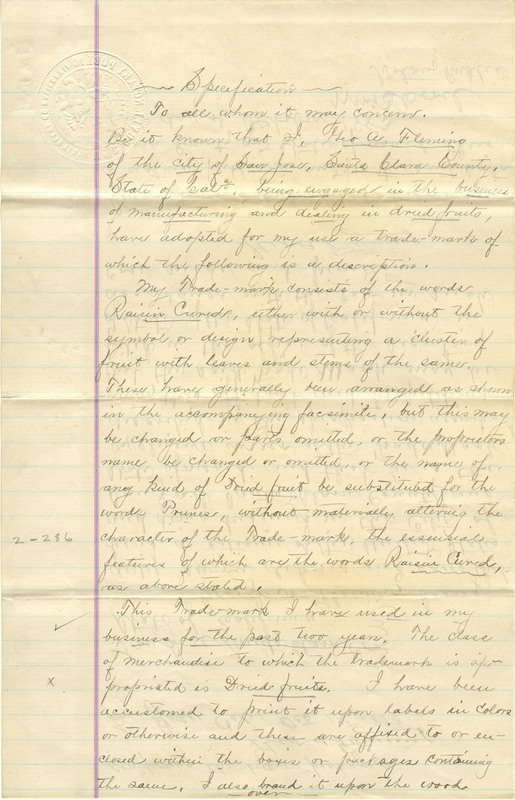 Specification
To all whom it may concern.
Be it known that I, Theo A. Fleming
of the city of San Jose, Santa Clara County,
State of Cala. being engaged in the business
of manufacturing and dealing in dried fruits,
have adopted for my use a trade-mark of
which the following is a description.
My Trade-mark consists of the words
Raisin Cured, either with or without the
symbol or design, representing a cluster of
fruit with leaves and stems of the same.
These have generally been arranged as shown
in the accompanying facsimile, but this may
be changed or parts omitted, or the proprietors
name be changed or omitted, or the name of
any kind of Dried fruit be substituted for the
word Prunes, without materially altering the
2-286
character of the Trade-mark, the essential
features of which are the words Raisin Cured,
as above stated.
This Trade-mark I have used in my
business for the past two years. The class
of merchandise to which the trademark is ap-
x
propriated is Dried fruits. I have been
accustomed to print it upon labels in colors
or otherwise and these are affixed to or en-
closed within the boxes or packages containing
the same. I also brand it upon the wood
over